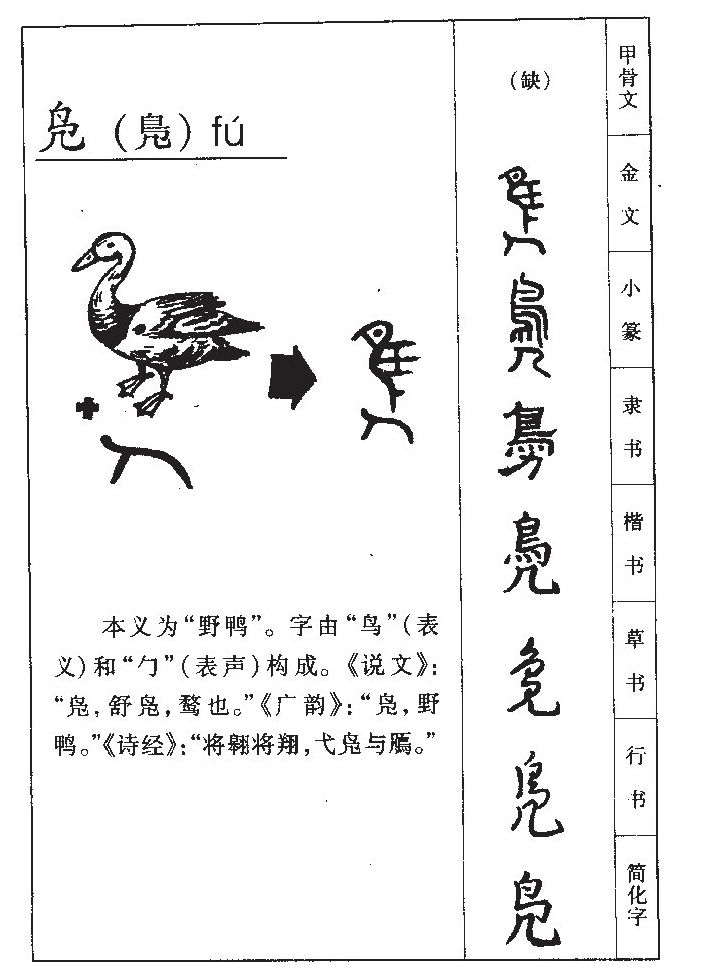 凫（鳧）fú
本义为“野鸭”。字由“鸟”(表
义)和“勹”(表声)构成。《说文》:
“凫,舒凫,鹜也。”《广韵》:“凫,野
鸭。”《诗经》:“将翱将翔,弋凫与鴈。”
(缺)
甲骨文
金文
小篆
隶书
鳧
楷书
草书
行书
凫
简化字